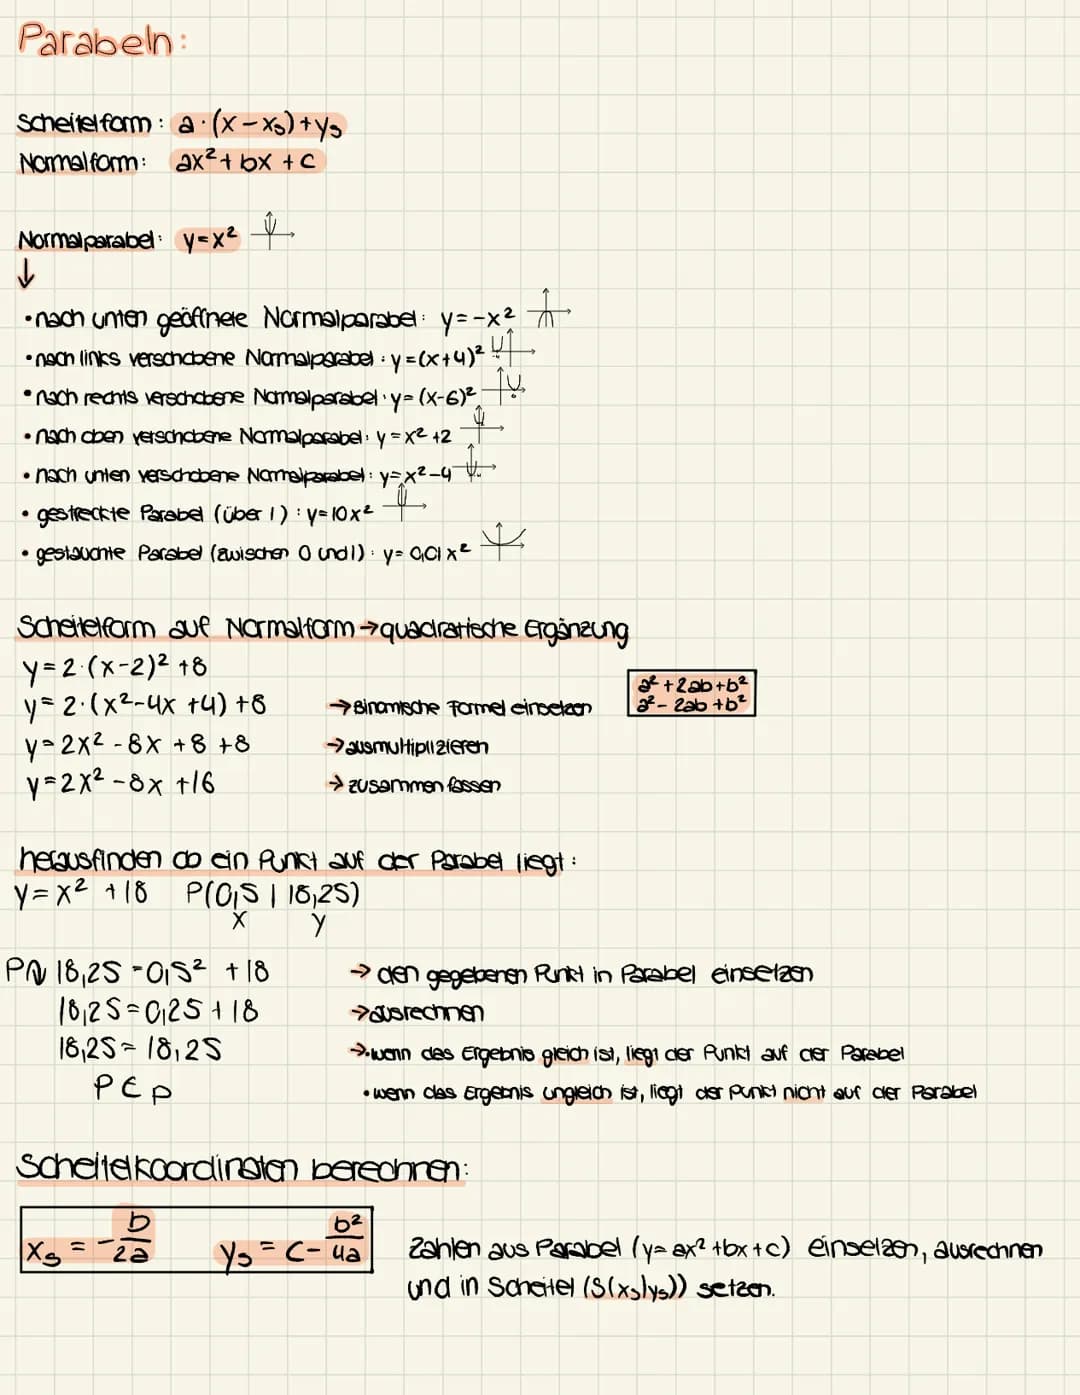 Parabeln:
Scheitelform: a·(x-xs)+ys
Normalform: ax²+bx+c
Normalparabel: y=x²
↓
• nach unten geöffnete Normalparabel: y=-x²
• nach links verschobene Normalparabel: y=(x+4)²
• nach rechts verschobene Normalparabel: y=(x-6)²
• nach oben verschobene Normalparabel: y=x²+2
• nach unten verschobene Normalparabel: y=x²-4
• gestreckte Parabel (über 1): y=10x²
• gestauchte Parabel (zwischen 0 und 1): y=0,01x²
Scheitelform auf Normalform → quadratische Ergänzung
y=2·(x-2)²+8
y=2·(x²-4x+4)+8 → Binomische Formel einsetzen
a²+2ab+b²
a²-2ab+b²
y=2x²-8x+8+8 → ausmultiplizieren
y=2x²-8x+16 → zusammenfassen
herausfinden ob ein Punkt auf der Parabel liegt:
y=x²+18 P(0,5 | 18,25)
x y
18,25=0,5²+18 → den gegebenen Punkt in Parabel einsetzen
18,25=0,25+18 → ausrechnen
18,25=18,25 → • wenn das Ergebnis gleich ist, liegt der Punkt auf der Parabel
P∈p • wenn das Ergebnis ungleich ist, liegt der Punkt nicht auf der Parabel
Scheitelkoordinaten berechnen:
xs = -b/2a ys = c-b²/4a
Zahlen aus Parabel (y=ax²+bx+c) einsetzen, ausrechnen
und in Scheitel (S(xs|ys)) setzen.